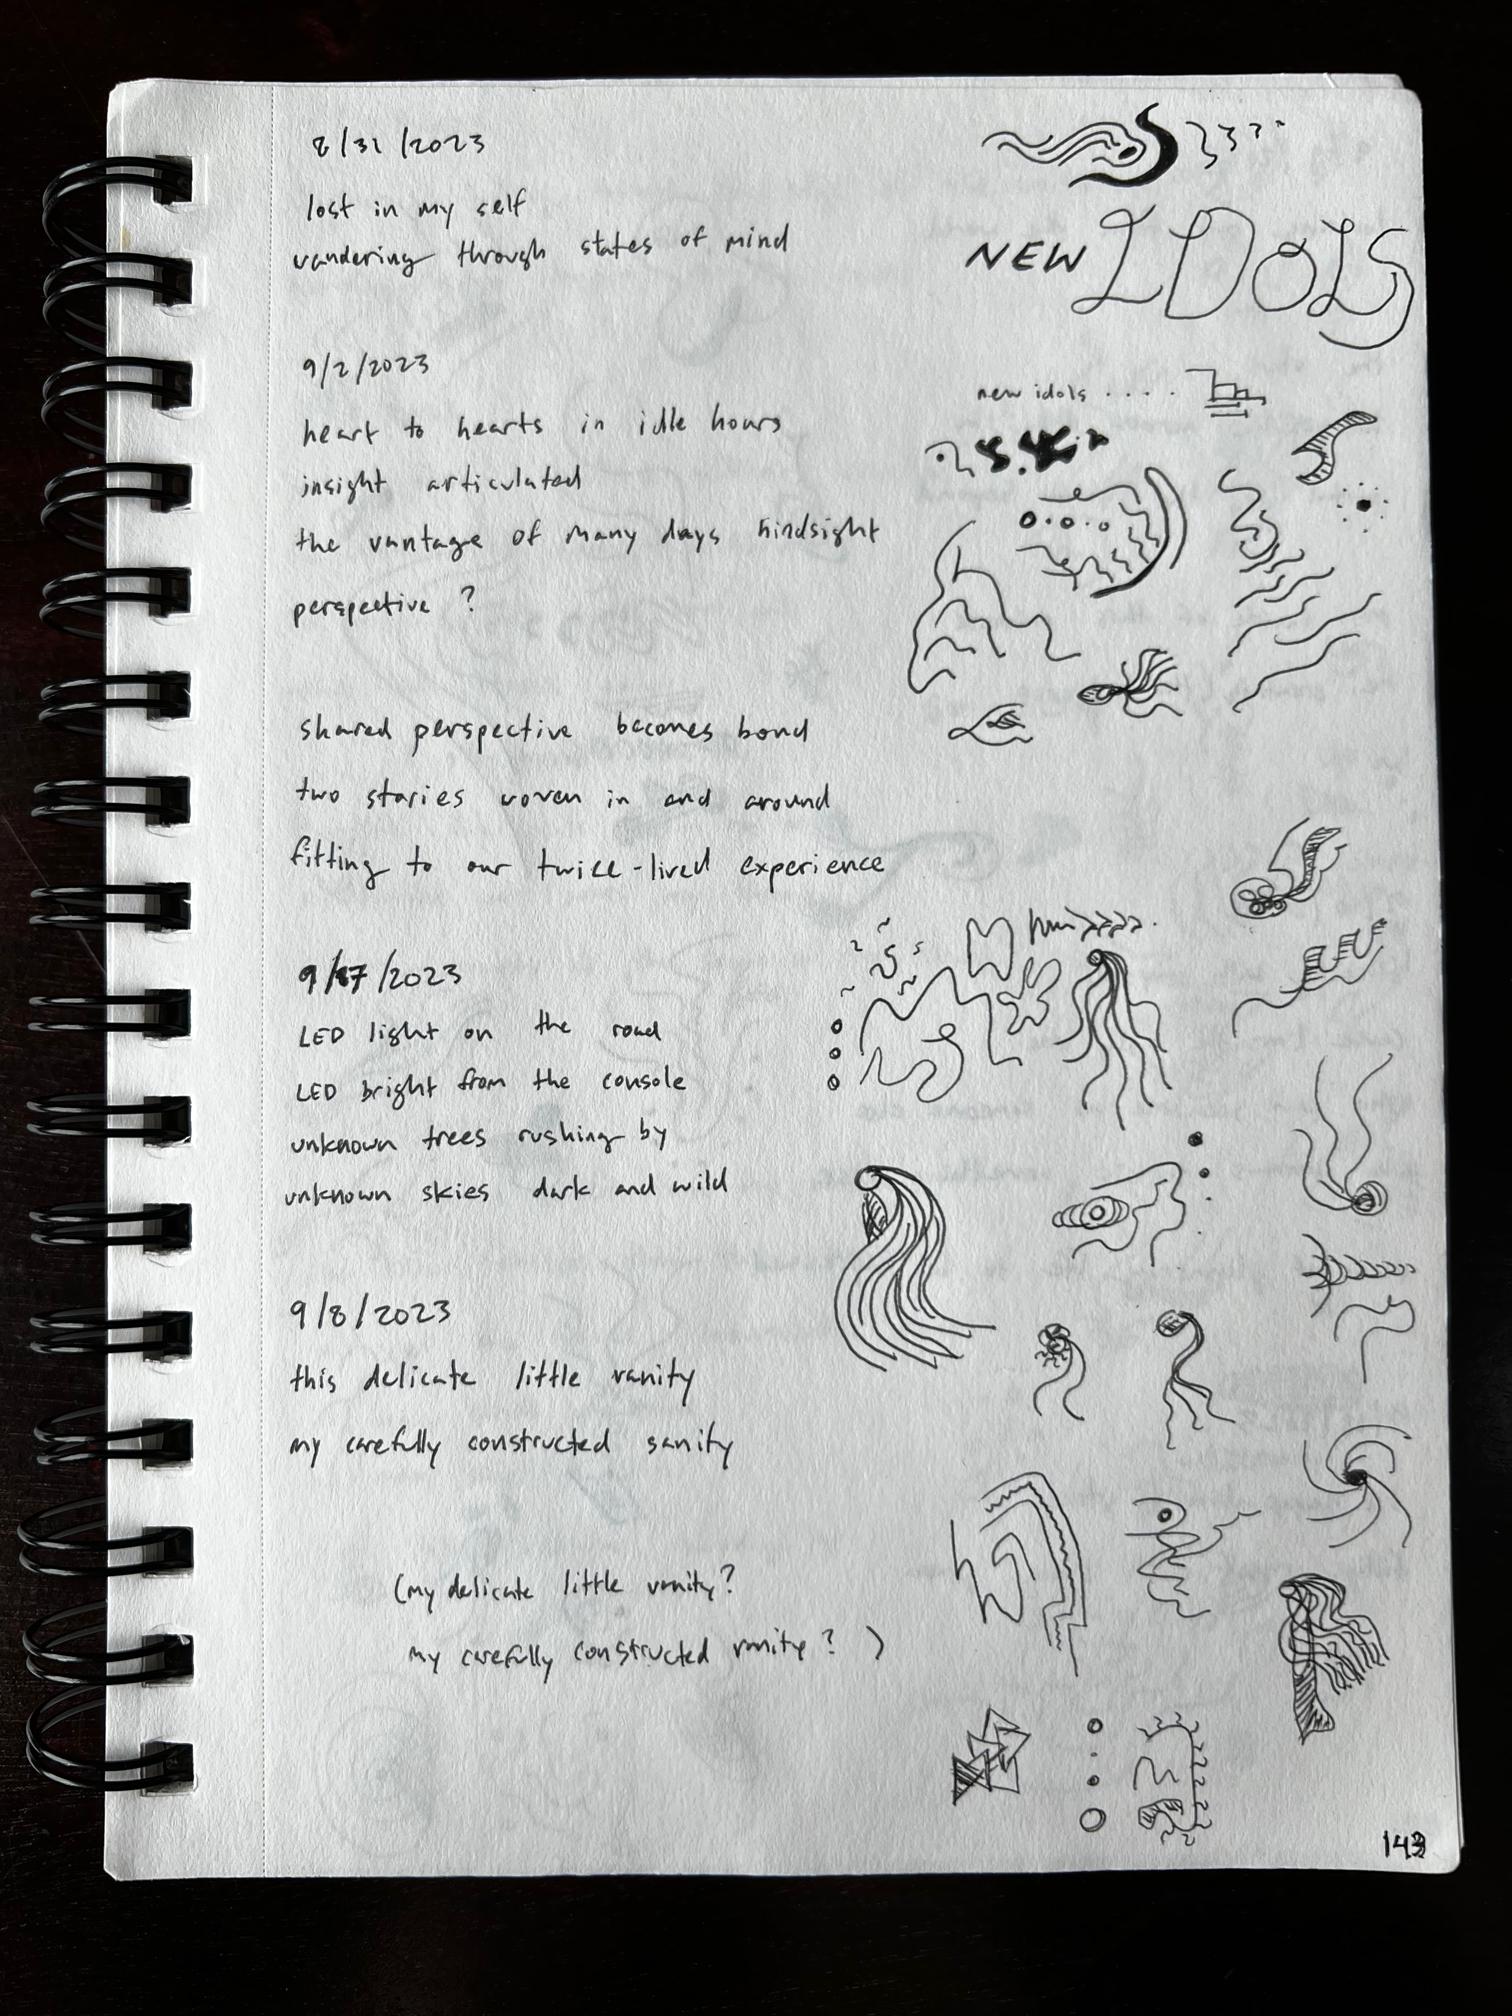 8/31/2023
lost in my self
wandering through states of mind
9/2/2023
heart to hearts in idle hours
insight articulated
the vantage of many days hindsight
perspective ?
shared perspective becomes bond
two stories woven in and around
fitting to our twice-lived experience
9/7/2023
LED light on the road
LED bright from the console
unknown trees rushing by
unknown skies dark and wild
9/8/2023
this delicate little vanity
my carefully constructed sanity
(my delicate little vanity?
my carefully constructed vanity? )
NEW IDOLS
new idols ....
143